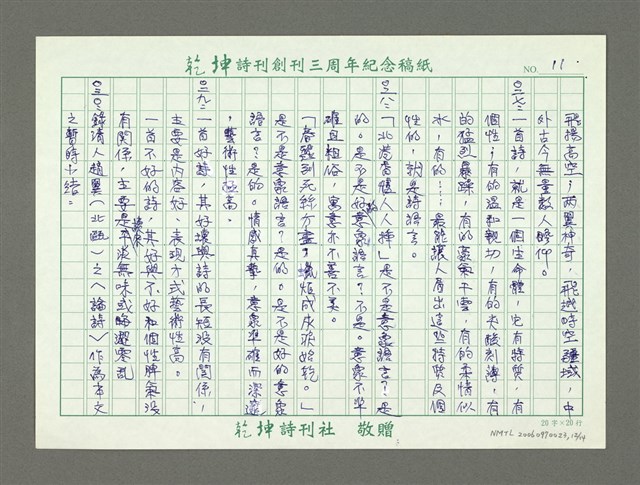 乾坤詩刊創刊三周年紀念稿紙
NO. 11
飛揚高空；兩翼神奇，飛越時空疆域，中
外古今無量數人瞻仰。
一首詩，就是一個生命體，它有特質，有
個性；有的溫和親切，有的尖酸刻薄，有
的猛烈暴躁，有的豪氣干雲，有的柔情似
水，有的……最能讓人看出這些特質及個
性的，就是詩語言。
「北港香爐人人捧」是不是意象語言？是
的。是不是好的意象語言？不是。意象不準
確且粗俗，寓意亦不善不美。
「春蠶到死絲方盡，蠟炬成灰淚始乾。」
是不是意象語言？是的。是不是好的意象
語言？是的。情感真摯，意象準確而深遠
，藝術性極高。
一首好詩，其好壞與詩的長短沒有關係，
主要是內容好、表現方式藝術性高。
一首不好的詩，其好與不好和個性脾氣沒
有關係，主要是讀來平淡無味或晦澀零亂
錄清人趙翼（北甌）之〈論詩〉作為本文
之暫時小結。
乾坤詩刊社 敬贈
20字×20行
NMTL 20060990023, 12/14